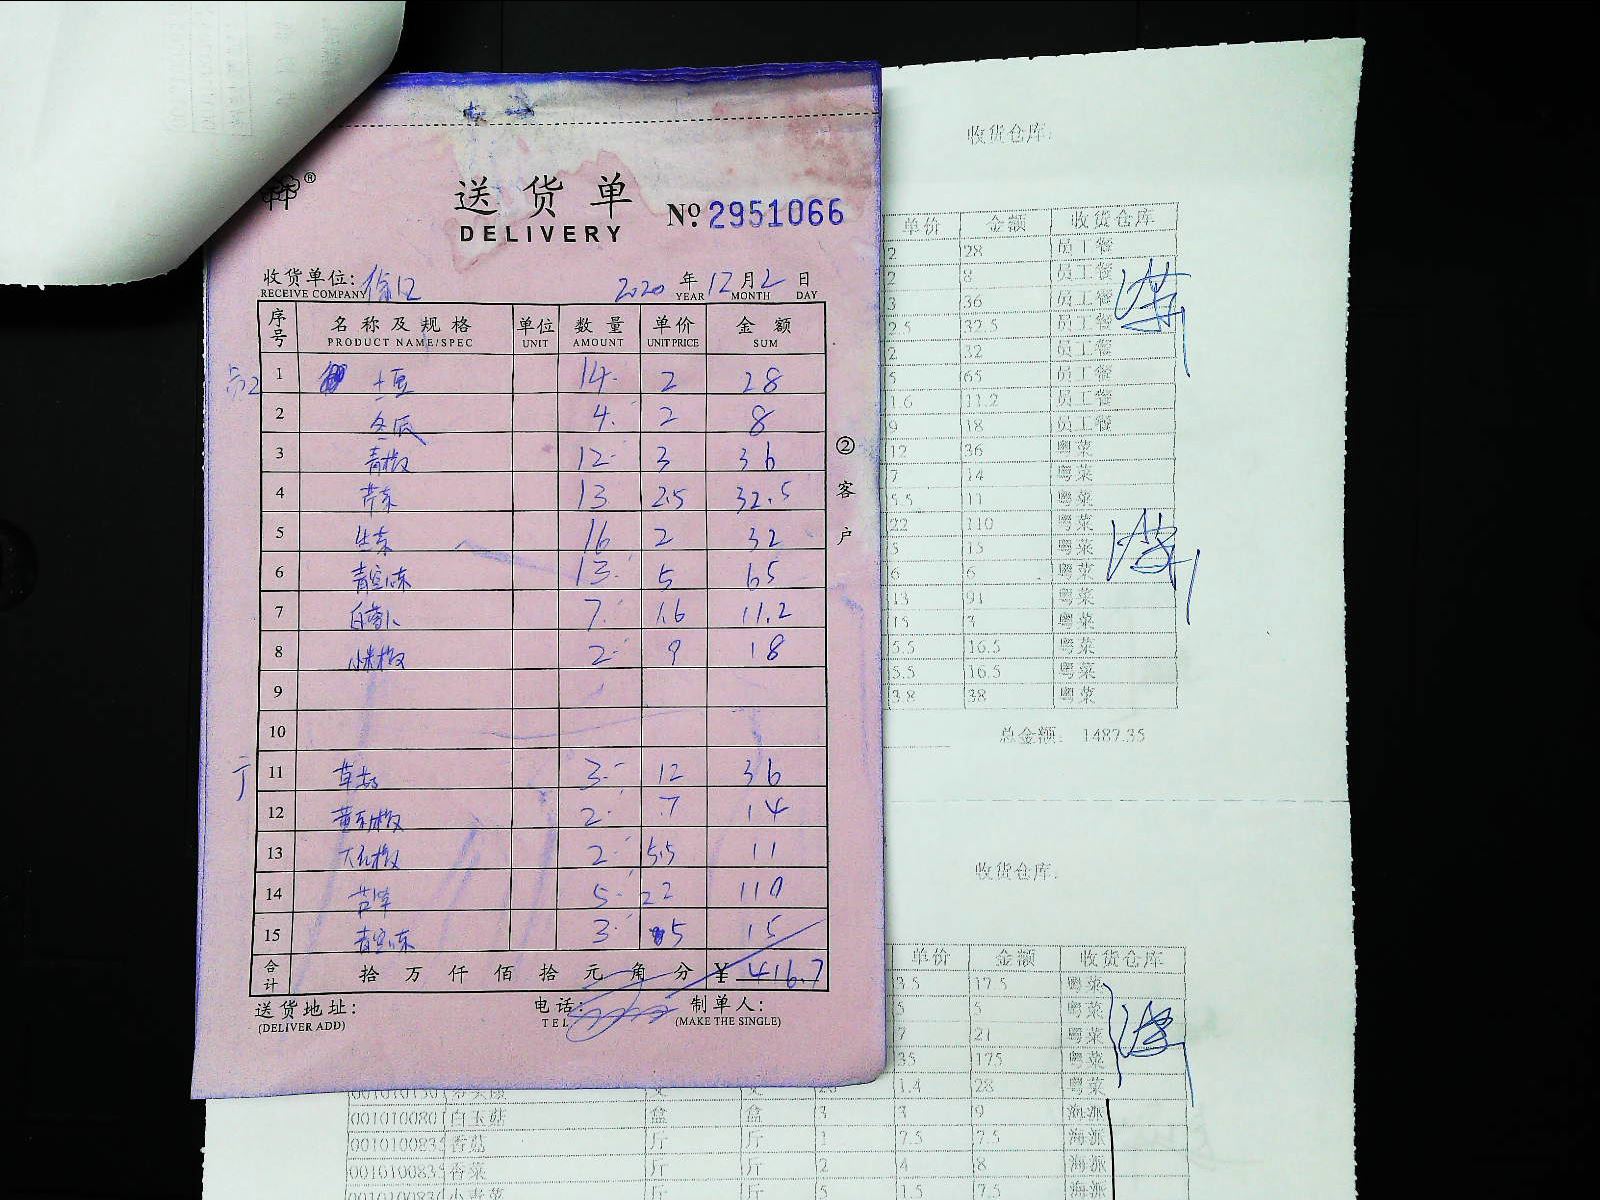 收货仓库:
送货单
№ 2951066
DELIVERY
收货单位: 徐口 2020 年 12 月 2 日
RECEIVE COMPANY YEAR MONTH DAY
序号 名称及规格 单位 数量 单价 金额
PRODUCT NAME/SPEC UNIT AMOUNT UNIT PRICE SUM
1 土豆 14 2 28
2 冬瓜 4 2 8
3 青椒 12 3 36
4 芹菜 13 2.5 32.5
5 生菜 16 2 32
6 青 13 5 65
7 白萝卜 7 1.6 11.2
8 小米椒 2 9 18
9
10
11 草菇 3 12 36
12 黄彩椒 2 7 14
13 大红椒 2 5.5 11
14 5 22 110
15 青 3 5 15
合计 拾万仟佰拾元角分 ¥ 416.7
送货地址: 电话: 制单人:
(DELIVER ADD) TEL (MAKE THE SINGLE)
② 客户
单价 金额 收货仓库
2 28 员工餐
2 8 员工餐
3 36 员工餐
2.5 32.5 员工餐
2 32 员工餐
5 65 员工餐
1.6 11.2 员工餐
9 18 员工餐
12 36 粤菜
7 14 粤菜
5.5 11 粤菜
22 110 粤菜
5 15 粤菜
6 6 粤菜
13 91 粤菜
15 3 粤菜
5.5 16.5 粤菜
5.5 16.5 粤菜
3.8 38 粤菜
总金额: 1487.35
收货仓库:
单价 金额 收货仓库
3.5 17.5 粤菜
5 5 粤菜
7 21 粤菜
35 175 粤菜
1.4 28 粤菜
001010080 白玉菇 盒 盒 3 3 9 海派
001010083 香菇 斤 斤 1 7.5 7.5 海派
001010083 香菜 斤 斤 2 4 8 海派
小青菜 斤 斤 5 1.5 7.5 海派